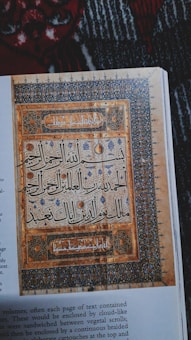 بسم الله الرحمن الرحيم
الحمد لله رب العلمين الرحمن الرحيم
ملك يوم الدين اياك نعبد
volumes, often each page of text contained
These would be enclosed by cloud-like
were sandwiched between vegetal scrolls,
then be enclosed by a continuous braided
cartouches at the top and